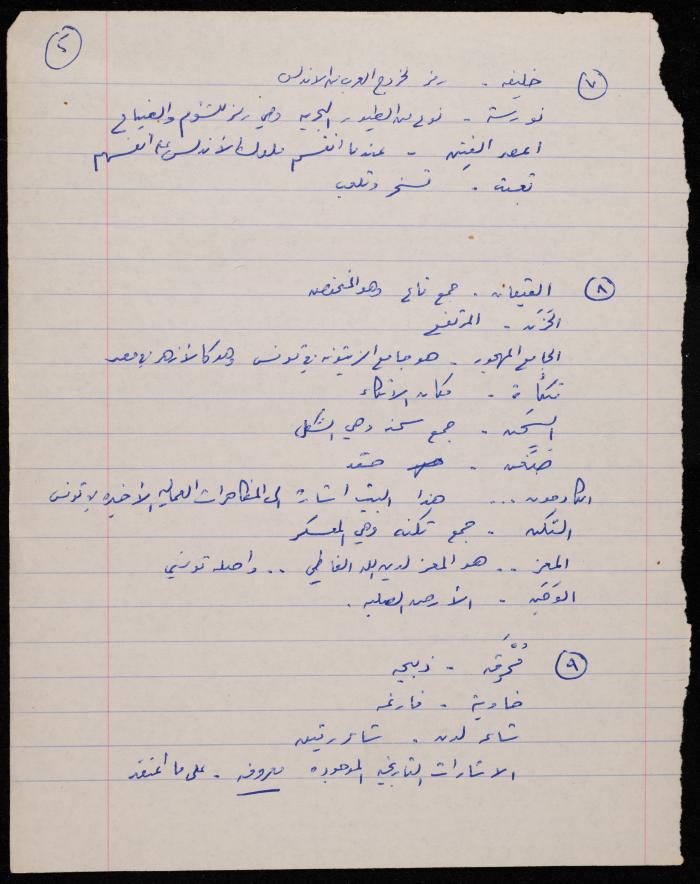 ٧
خليفه . رمز لخروج العرب من الاندلس
نورسة - نوع من الطيور البحريه وهي رمز للتشؤم والضياع
اعصر الفتن - عندما انقسم ملوك الأندلس على انفسهم
تعبث . تسخر وتلعب
٨
القيعان . جمع قاع وهو المنخفض
الحَزَن . المرتفع
الجامع المهجور . هو جامع الزيتونه في تونس وهو كالأزهر في مصر
تكأة . مكان الاتكاء
السحن . جمع سحنه وهي الشكل
ضغن . حقد
الكادحون ... هذا البيت اشارة الى المظاهرات العماليه الأخيره في تونس
الثكن . جمع ثكنه وهي المعسكر
المعز .. هو المعز لدين الله الفاطمي .. واصله تونسي
الوَجَن . الأرض الصلبه .
٩
مُحْرَقه - ذبيحه
خاوية . فارغه
شاعر لدن . شاعر رقيق
الاشارات التاريخيه الموجوده معروفه . على ما اعتقد